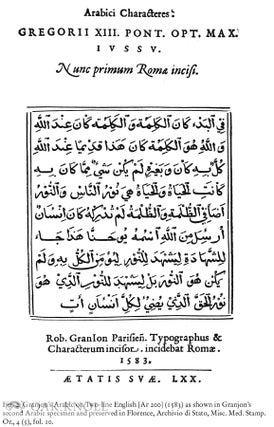 Arabici Characteres:
GREGORII XIII. PONT. OPT. MAX.
IVSSV.
Nunc primum Romæ incisi.
في البدء كان الكلمة والكلمة كان عند الله
والله هو الكلمة كان هذا قديما عند الله
كل به كان وبغيره لم يكن شي مما كان به
كانت الحياة والحياة هي نور الناس والنور
اضا في الظلمة والظلمة لم تدركه كان انسان
ارسل من الله اسمه يوحنا هذا جاء
للشهادة ليشهد للنور ليومن الكل به ولم
يكن هو النور بل ليشهد للنور الذي هو
نور الحق الذي يضي لكل انسان ات
Rob. GranIon Parisien. Typographus &
Characterum incisor. incidebat Romæ.
1583.
ÆTATIS SVÆ. LXX.
Granjon's Arabic on Two-line English [Ar 200] (1583) as shown in Granjon's
second Arabic specimen and preserved in Florence, Archivio di Stato, Misc. Med. Stamp.
Or., 4 (5), fol. 20.